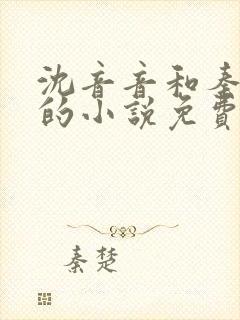 沈音音和秦
的小说免費
秦楚